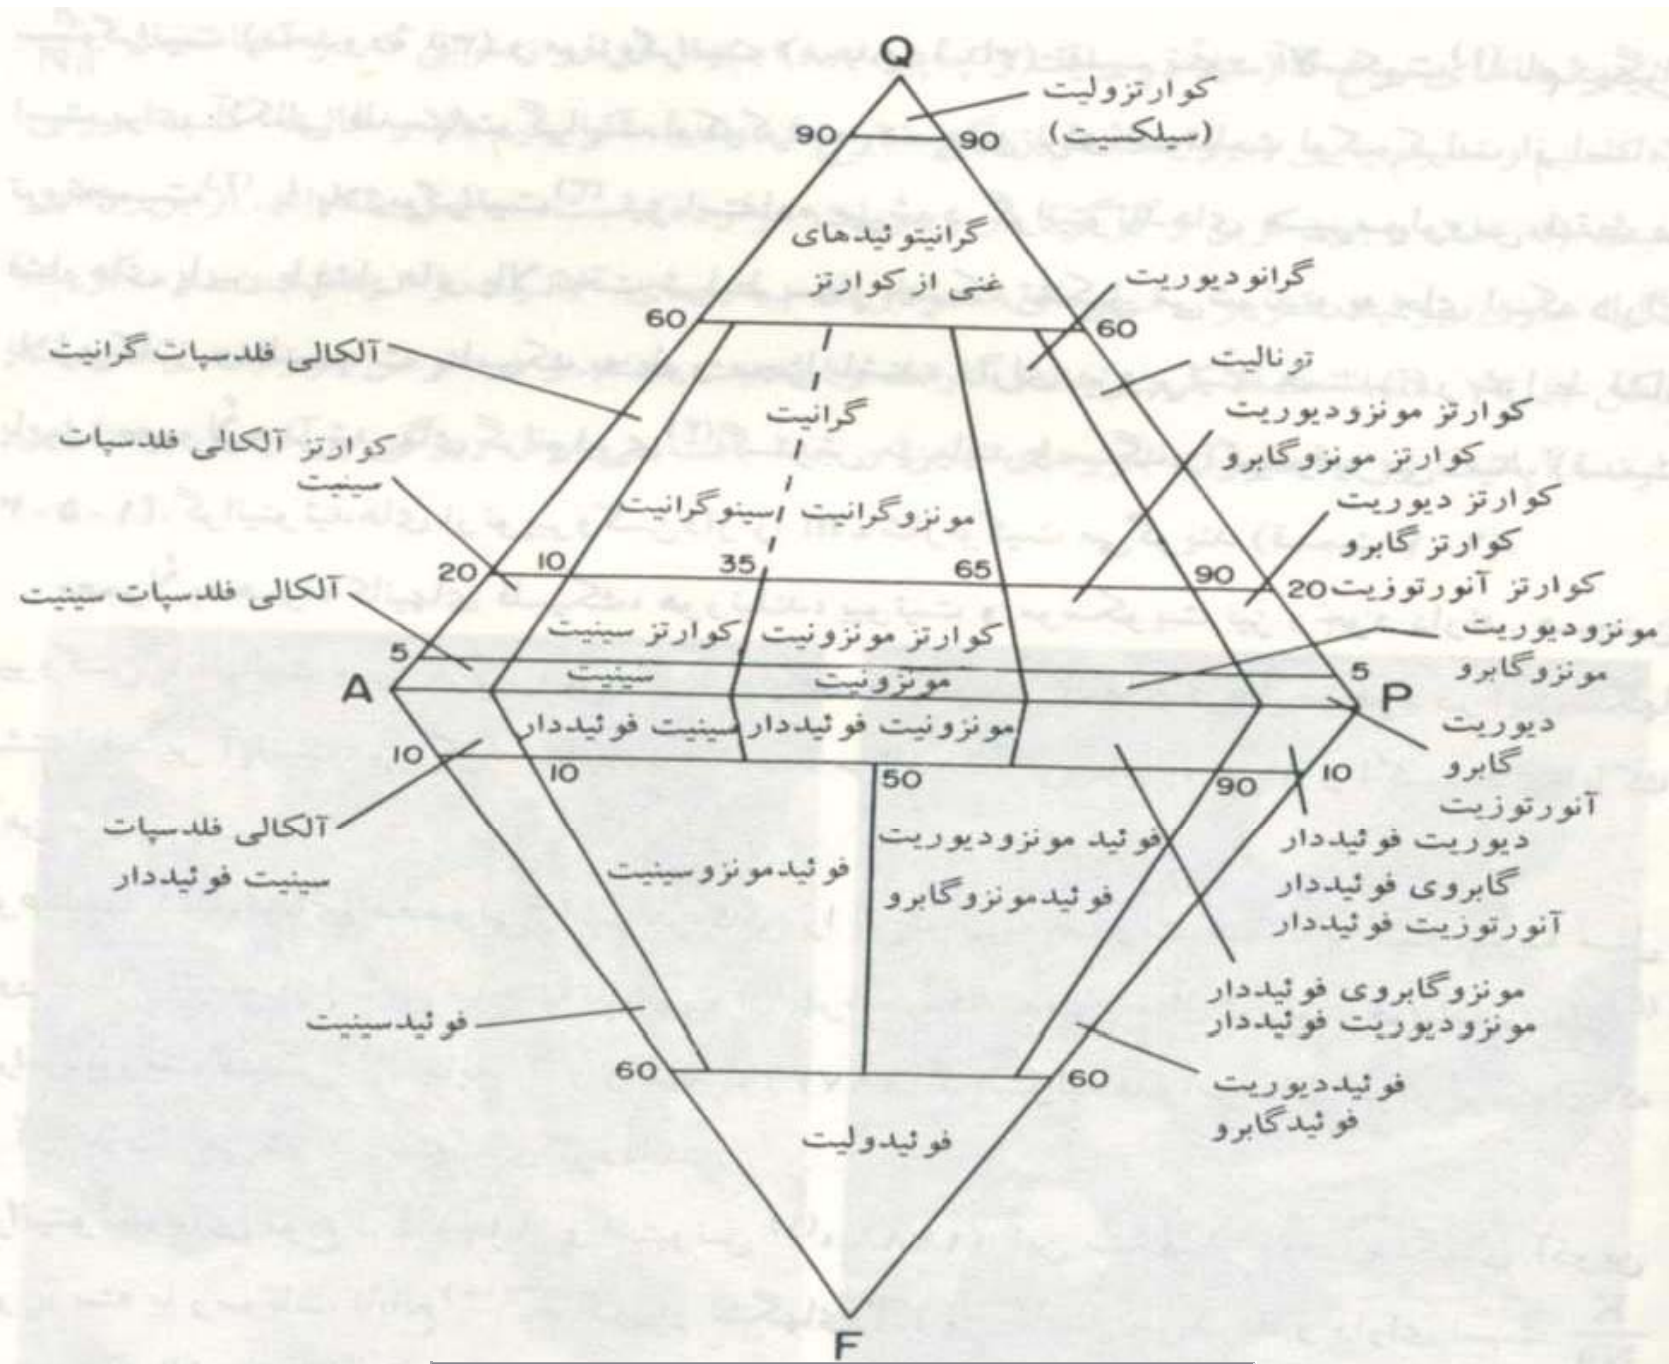 Q
کوارتزولیت
(سیلکسیت)
90 90
گرانیتوئیدهای
غنی از کوارتز
گرانودیوریت
60 60
آلکالی فلدسپات گرانیت
تونالیت
گرانیت
کوارتز مونزودیوریت
کوارتز مونزوگابرو
کوارتز آلکالی فلدسپات
سینیت
کوارتز دیوریت
کوارتز گابرو
کوارتز آنورتوزیت
سینوگرانیت
مونزوگرانیت
20 10 35 65 90 20
آلکالی فلدسپات سینیت
کوارتز سینیت
کوارتز مونزونیت
مونزودیوریت
مونزوگابرو
5 5
سینیت
مونزونیت
A P
دیوریت
گابرو
آنورتوزیت
سینیت فوئیددار
مونزونیت فوئیددار
10 10 50 90 10
آلکالی فلدسپات
سینیت فوئیددار
فوئیدمونزوسینیت
فوئید مونزودیوریت
فوئیدمونزوگابرو
دیوریت فوئیددار
گابروی فوئیددار
آنورتوزیت فوئیددار
مونزوگابروی فوئیددار
مونزودیوریت فوئیددار
فوئیدسینیت
60 60
فوئیددیوریت
فوئیدگابرو
فوئیدولیت
F